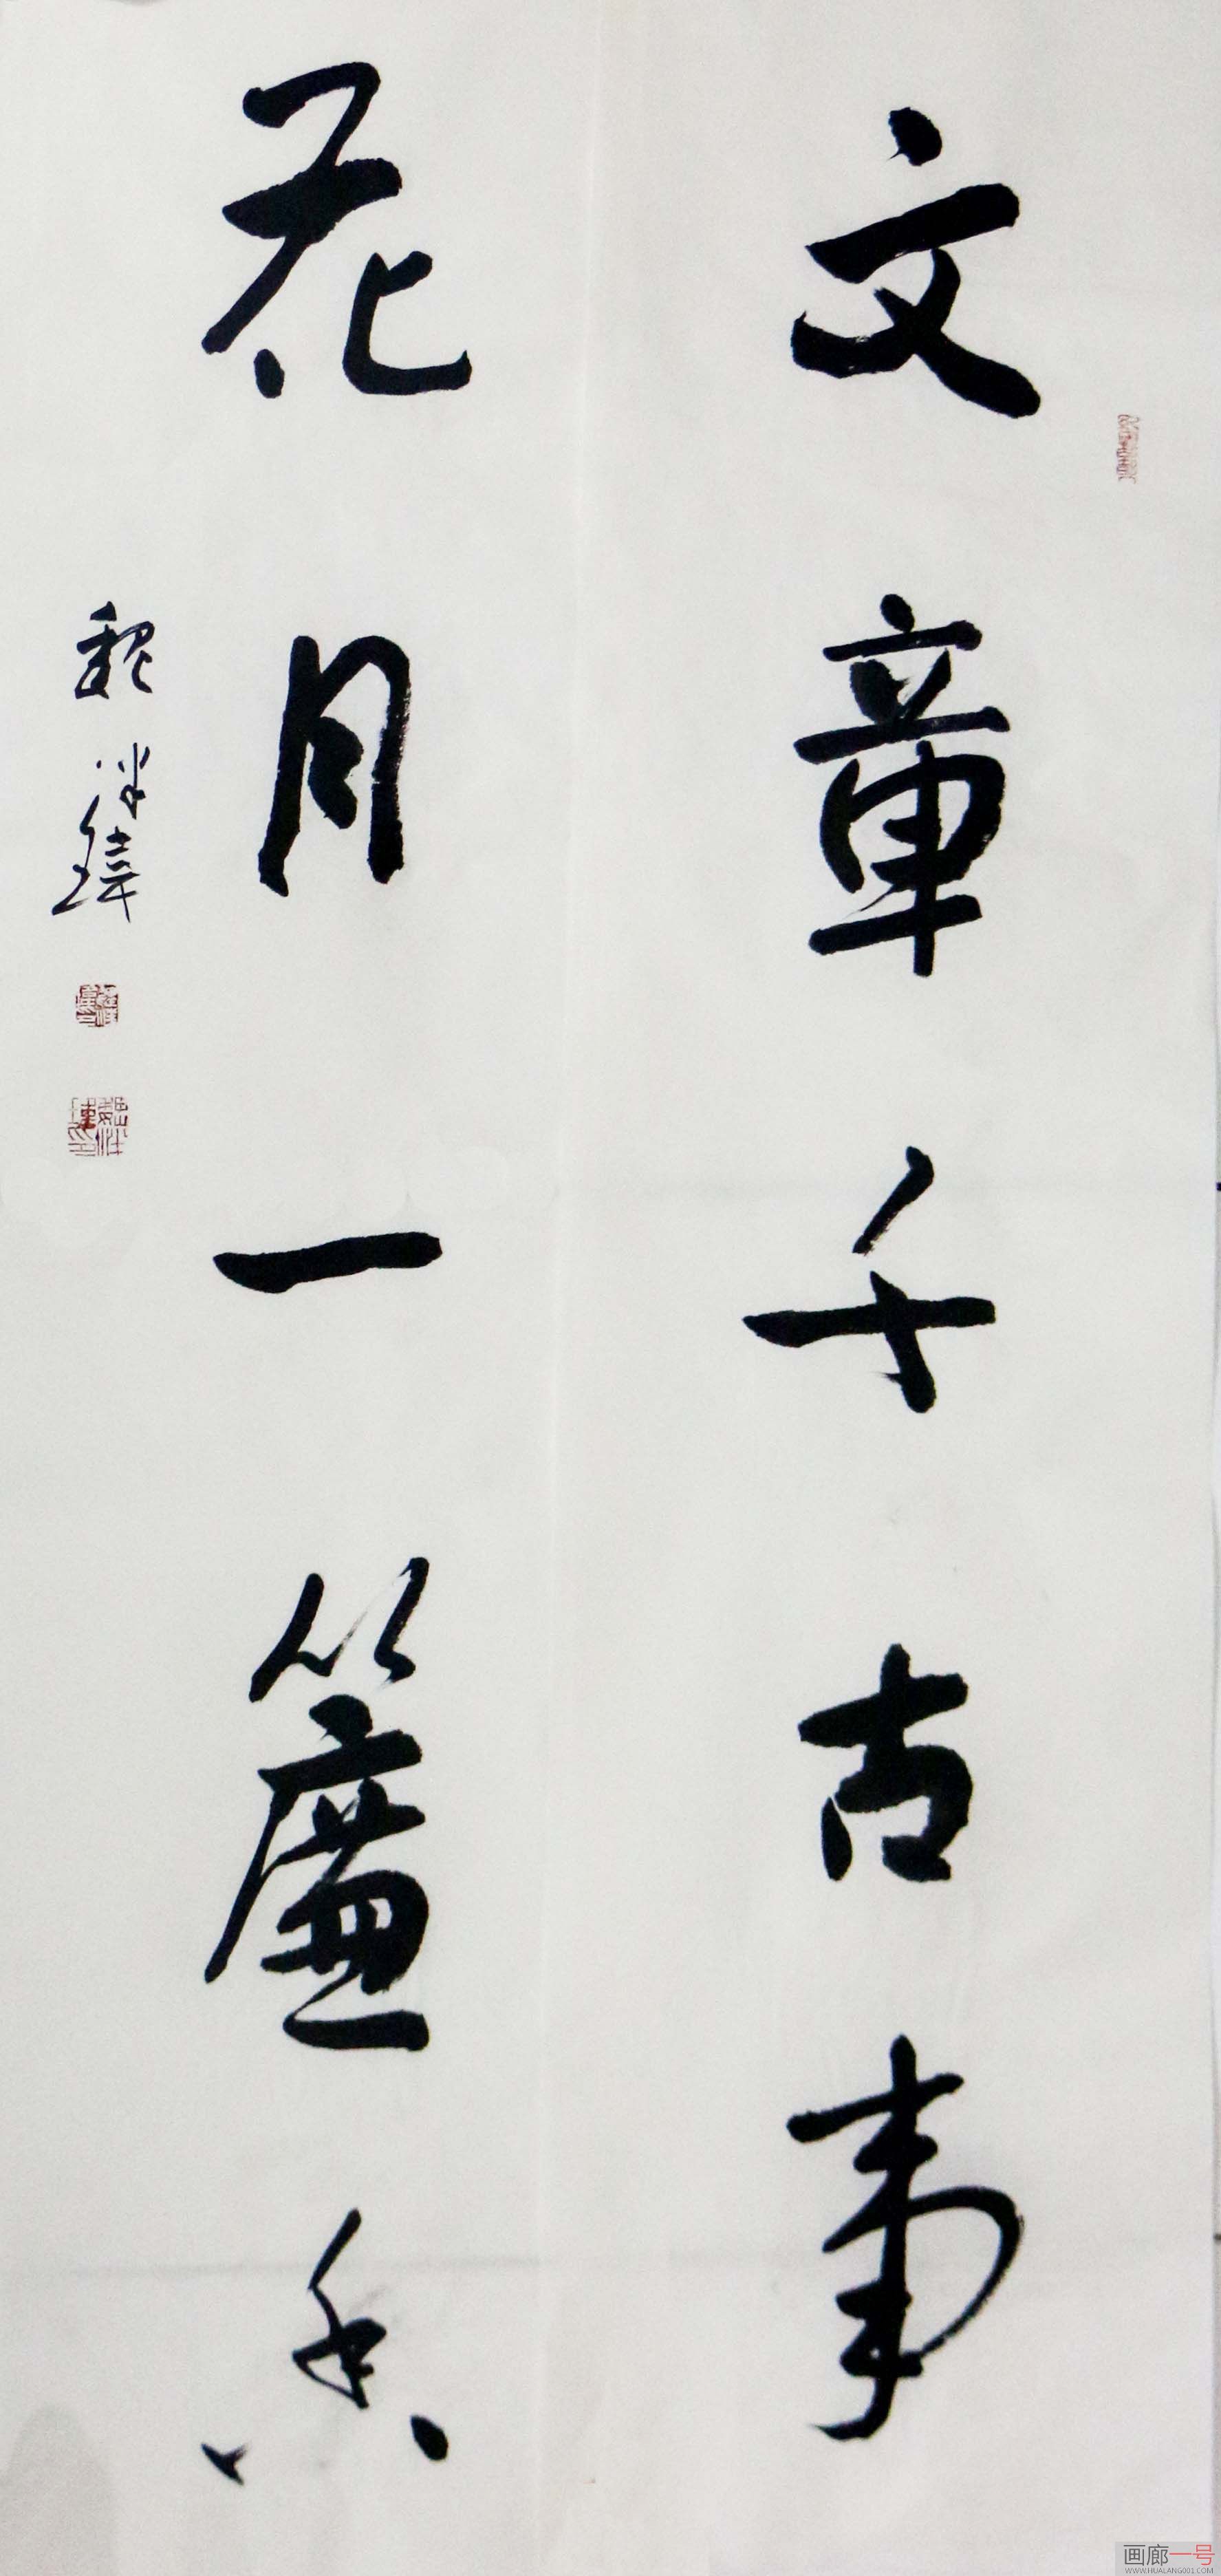 文章千古事
花月一簾香
魏洋瑋
画廊一号
WWW.HUALANG001.COM